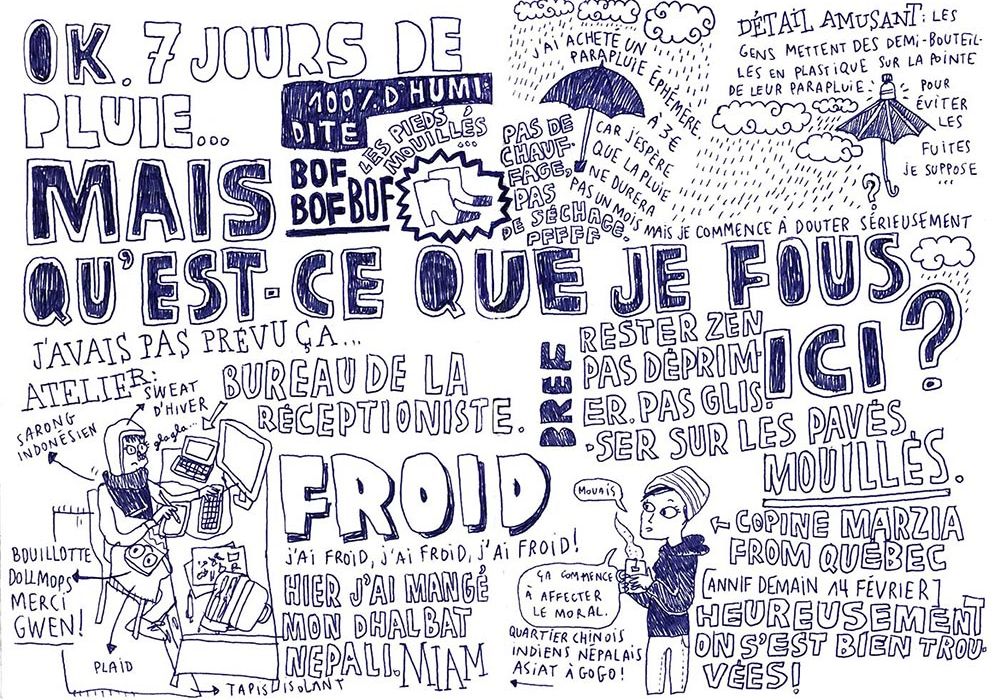 OK. 7 JOURS DE
PLUIE...
100% D'HUMI-
DITÉ
LES PIEDS
MOUILLÉS
...
MAIS
BOF
BOF BOF
PAS DE
CHAUF-
FAGE,
PAS
DE SÉCHAGE.
PFFFF
J'AI ACHETÉ UN
PARAPLUIE ÉPHÉMÈRE,
À 3€
CAR J'ESPÈRE
QUE LA PLUIE
NE DURERA
PAS UN MOIS MAIS JE COMMENCE À DOUTER SÉRIEUSEMENT
DÉTAIL AMUSANT: LES
GENS METTENT DES DEMI-BOUTEIL-
LES EN PLASTIQUE SUR LA POINTE
DE LEUR PARAPLUIE.
POUR
ÉVITER
LES
FUITES
JE SUPPOSE
...
?
QU'EST-CE QUE JE FOUS
ICI?
J'AVAIS PAS PRÉVU ÇA...
ATELIER:
SWEAT
D'HIVER
SARONG
INDONÉSIEN
glagla...
BUREAU DE LA
RÉCEPTIONISTE.
BREF
RESTER ZEN
PAS DÉPRIM-
ER. PAS GLIS-
SER SUR LES PAVÉS
MOUILLÉS.
BOUILLOTTE
DOLLMOPS
MERCI
GWEN!
PLAID
TAPIS ISOLANT
FROID
J'AI FROID, J'AI FROID, J'AI FROID!
HIER J'AI MANGÉ
MON DHALBAT
NEPALI. MIAM
MOUAIS
ÇA COMMENCE
À AFFECTER
LE MORAL.
QUARTIER CHINOIS
INDIENS NÉPALAIS
ASIAT À GOGO!
COPINE MARZIA
FROM QUÉBEC
[ANNIF DEMAIN 14 FÉVRIER]
HEUREUSEMENT
ON S'EST BIEN TROU-
VÉES!